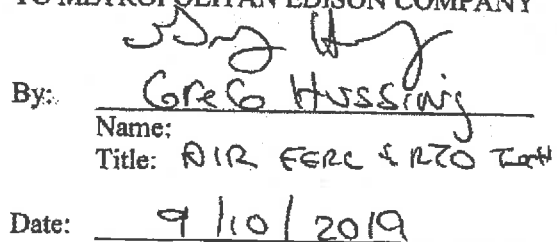 TO METROPOLITAN EDISON COMPANY
By: Greg Hussing
Name:
Title: DIR FERC & RTO
Date: 9/10/2019